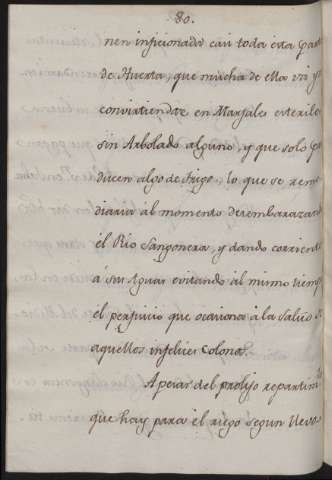 80.
nen inficionado casi toda esta par
de Huerta, que mucha de ella va y
convirtiendose en Marjales esteriles
sin Arbolado alguno, y que solo
ducen algo de trigo, lo que se reme
diaria al momento desembarazand
el Rio Sangonera, y dando corriente
á sus Aguas evitando al mismo tiemp
el perjuicio que ocasiona á la Salud
aquellos infelices Colonos.
Apesar del prolijo repartim
que hay para el riego segun llevo